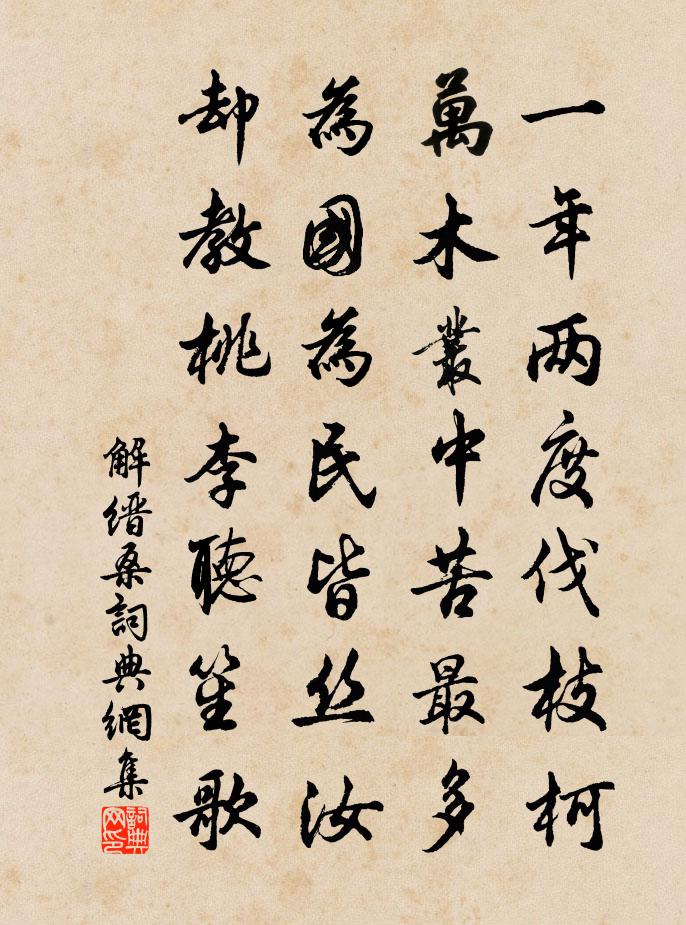 一年两度伐枝柯
萬木叢中苦最多
為國為民皆丝汝
却教桃李聽笙歌
解缙桑詞典網集
詞典网印